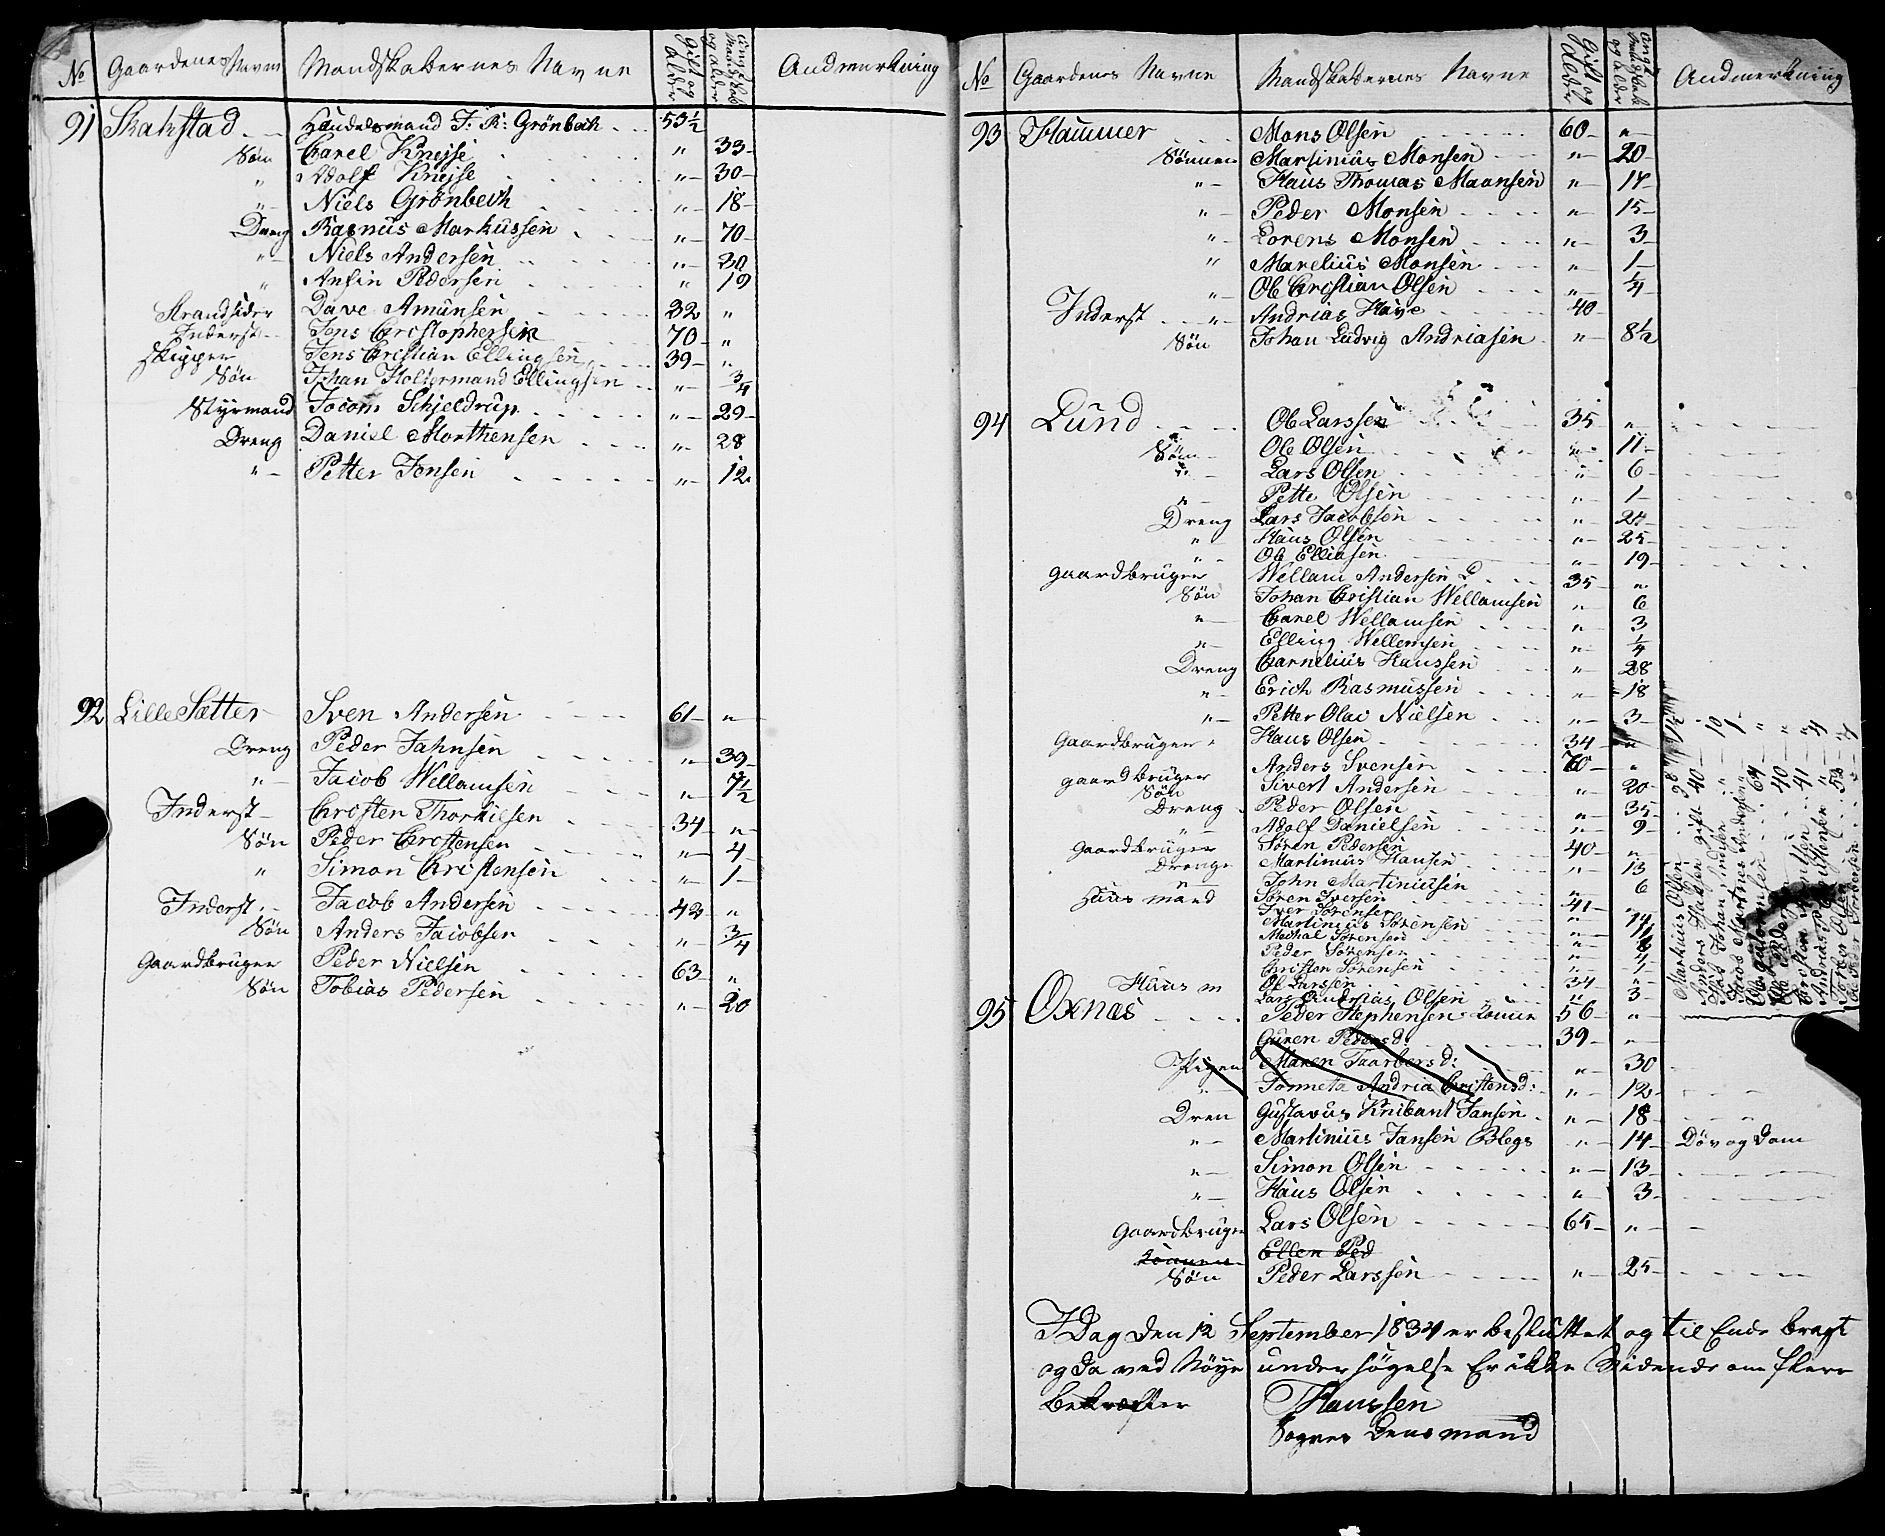 No Gaardenes Navne Mandskabernes Navne Gift og Alder Andmerkning
91 Skakstad Handelsmand J: R: Grönbech 53½
Søn Carel Knejse " 33
" Adolf Knejse " 30
" Niels Grønbech " 18
Dreng Rasmus Markussen " 70
" Niels Andersen " 30
" Anfin Pedersen " 19
Strandsider Dave Amunsen 32 "
Inderst Jens Christophersen 70 "
Skipper Jens Christian Ellingsen 39 "
Søn Johan Holtermand Ellingsen " 3/4
Styrmand Jocom Schjeldrup " 29
Dreng Daniel Morthensen " 28
" Petter Jensen " 12
92 Lille Sætter Sven Andersen 61 "
Dreng Peder Jahnsen " 39
" Jacob Wellamsen " 7½
Inderst Christen Thorkilsen 34 "
Søn Peder Christensen " 4
" Simon Christensen " 1
Inderst Jacob Andersen 42 "
Søn Anders Jacobsen " 3/4
Gaardbruger Peder Nielsen 63 "
Søn Tobias Pedersen " 20
No Gaardenes Navne Mandskabernes Navne Gift og Alder Andmerkning
93 Hammer Mons Olsen 60 "
Sønner Martinius Monsen " 20
" Hans Thomas Maansen " 17
" Peder Monsen " 15
" Lorens Monsen " 3
" Marelius Monsen " 1
" Ole Christian Olsen " 1/4
Inderst " Andrias Have 40
Søn Johan Ludvig Andriasen " 8½
94 Lund Ole Larssen 35 "
Søn Ole Olsen " 11
" Lars Olsen " 6
" Pette Olsen " 1
Dreng Lars Jacobsen " 24
" Hans Olsen " 25
" Ole Elliasen " 19
Gaardbruger Wellam Andersen L 35 "
Søn Johan Christian Wellamsen " 6
" Carel Wellamsen " 3
" Elling Wellemsen " 1/4
Dreng Carnelius Hanssen " 28
" Erich Rasmussen " 18
" Petter Olai Nielsen " 3
Gaardbruger Hans Olsen 34 "
gaardbruger Anders Svensen 70 "
Søn Sivert Andersen " 20
Dreng Peder Olsen " 35
" Adolf Danielsen " 9
Gaardbruger Søren Pedersen 40 "
Drenge Martinius Hansen " 13
" John Martiniusen " 6
Huus mand Søren Iversen 41 "
Iver Sørensen " 14
Martinius Sørensen "
Mechal Sørensen "
Peder Sørensen " 4
Christen Sørensen " 1
Huus m Ole Larssen 34 "
Lars Andrias Olsen " 3
95 Oxnæs Peder Stephensen 56 "
Guren Pedersd: 39 "
Pigen Maren Taarbersd: " 30
Tonneta Andria Christensd: " 12
Dren Gustavus Knibant Jansen " 18
" Martinius Jansen Blegs " 14 Döv og Dom
" Simon Olsen " 13
" Hans Olsen " 3
Gaardbruger Lars Olsen 65 "
Ellen Ped
Søn Peder Larssen " 25
Markuus Olsen
Anders Haksen gift 40
Johan
Jacob Martines Andersen
Andrias
Torber Olsen 53
Peder Torbersen
IDag den 12 September 1834 er besluttet og til Ende bragt
og da ved Nöye undersøgelse Er ikke Vidende om flere
bekræfter THanssen
Sognes Lensmand